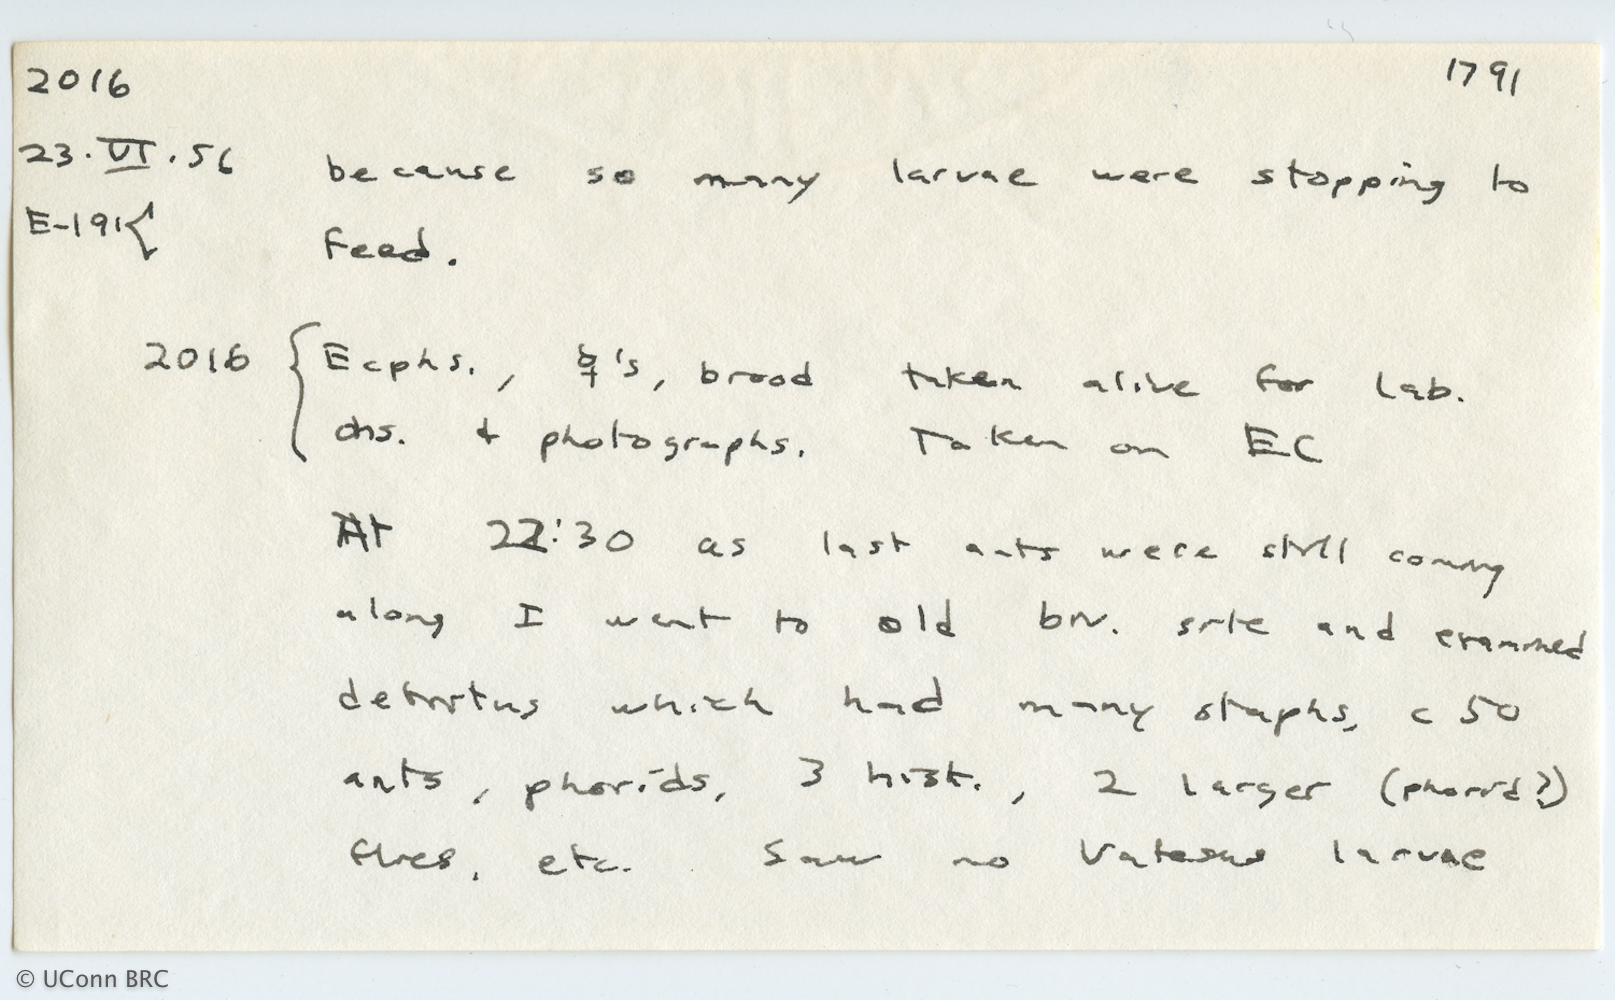 2016
1791
23.VI.56 because so many larvae were stopping to
E-191{ feed.
2016 { Ecphs., ☿'s, brood taken alive for lab.
obs. & photographs. Taken on EC
At 22:30 as last ants were still coming
along I went to old biv. site and examined
detritus which had many staphs, c 50
ants, phorids, 3 hist., 2 larger (phorid?)
flies, etc. Saw no Vatesus larvae
© UConn BRC